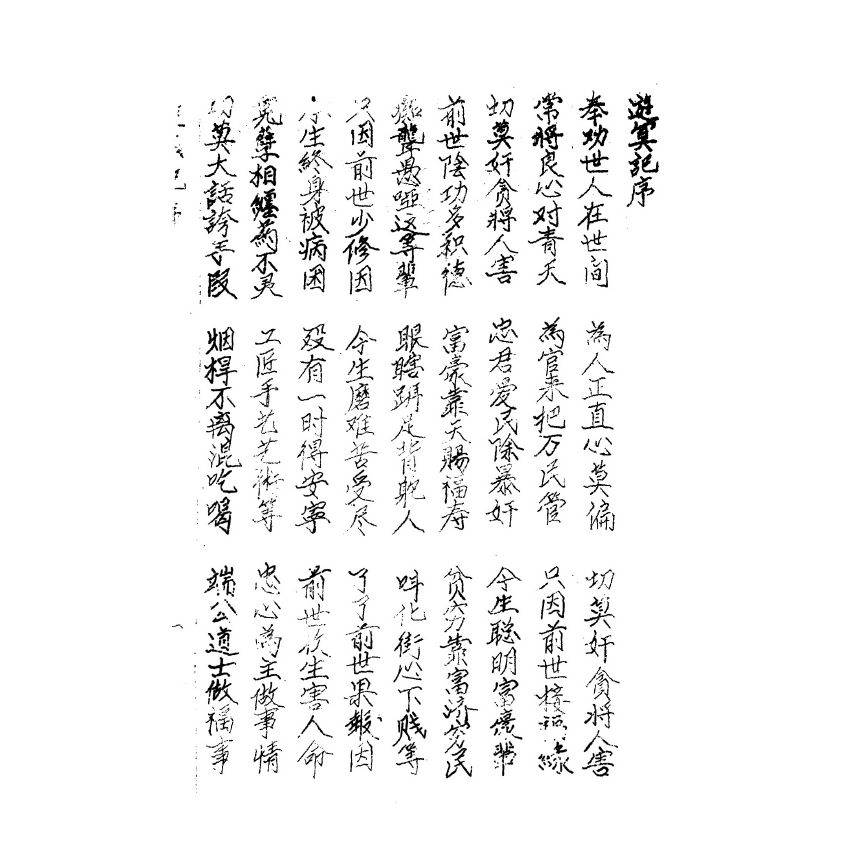 遊冥記序
奉功世人在世间 為人正直心莫偏 切莫奸貪将人害
常將良心对青天 為官来把万民管 只因前世接緣
切莫奸貪將人害 忠君愛民除暴奸 今生聪明富豪輩
前世陰功多积德 富豪靠天賜福寿 贫穷靠富济穷民
聾愚哑这等輩 眼瞎跰足背駝人 叫化街心下贱等
只因前世少修因 今生磨难苦受尽 了了前世果報因
生終身被病困 殁有一时得安寧 前世收生害人命
冤孽相纏药不灵 工匠手艺艺術等 忠心為主做事情
切莫大話誇手段 烟桿不离混吃喝 端公道士做福事